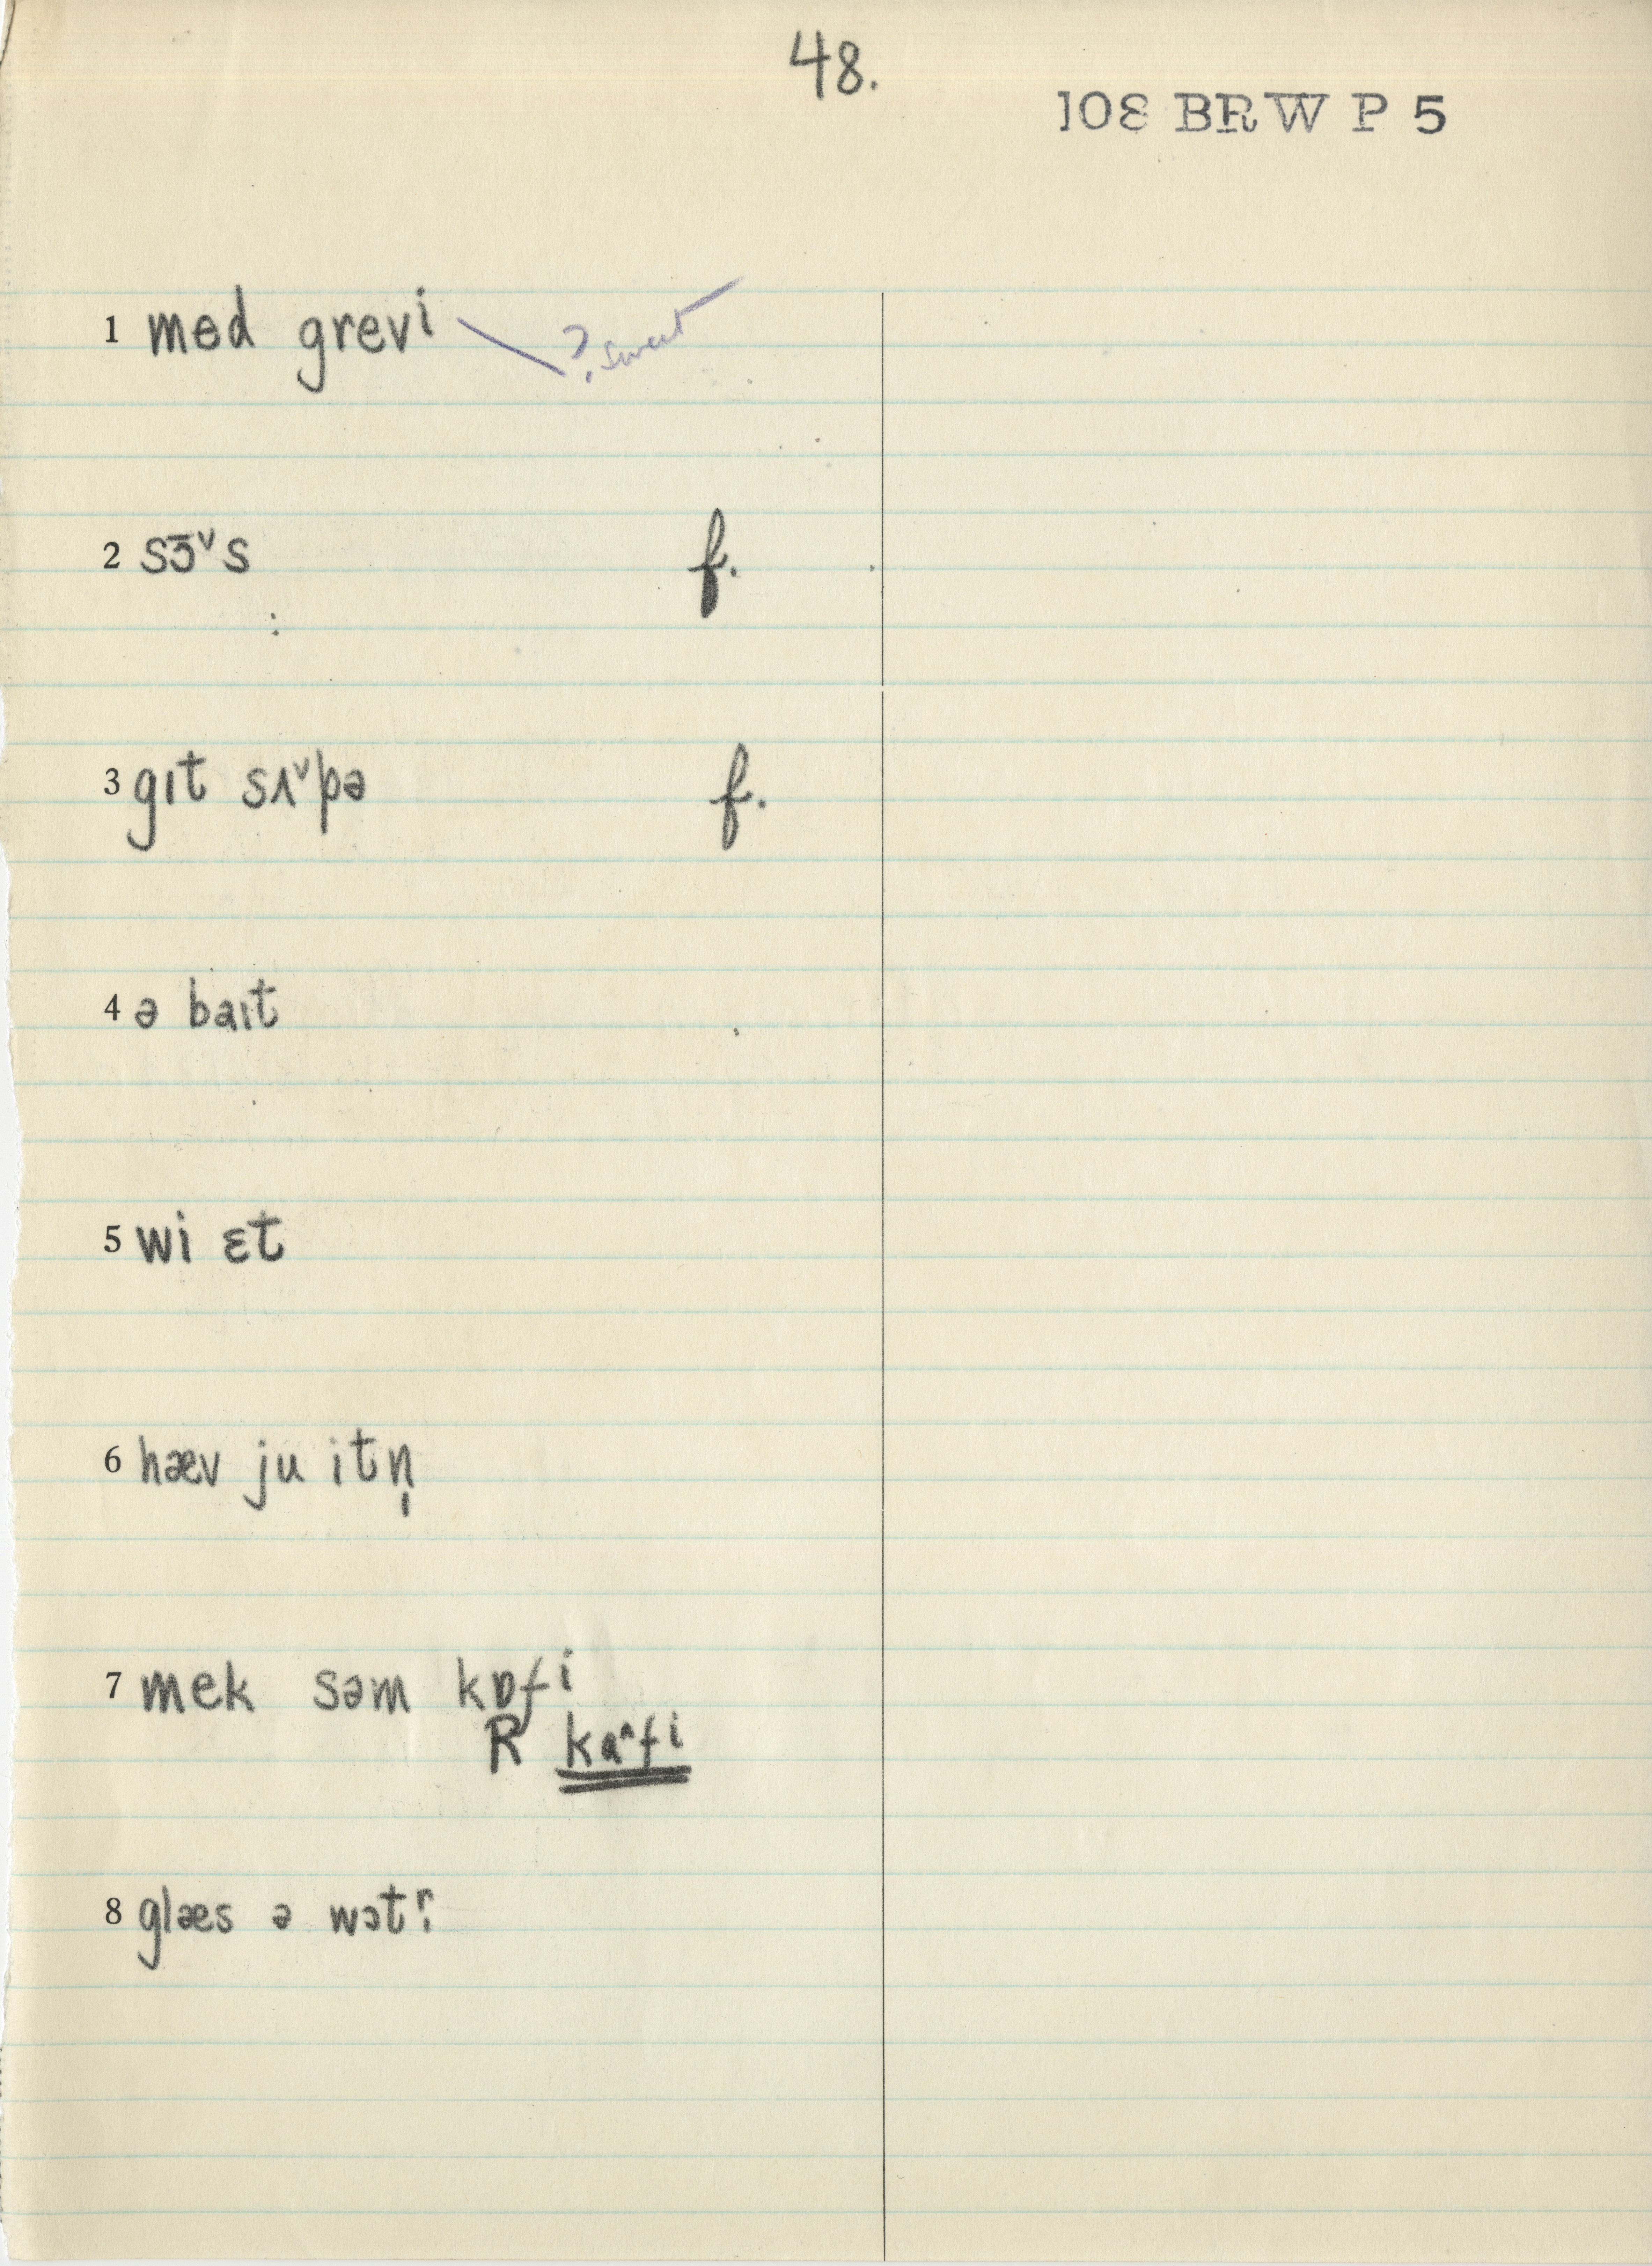 48.
108 BRW P 5
1 med grevi ? sweet
2 sɔ̄ˇs f.
3 gɪt sʌˇpə f.
4 ə baɪt
5 wi ɛt
6 hæv ju itn̩
7 mek səm kɒfi
R kɑ^fi
8 glæs ə wɔtr̥